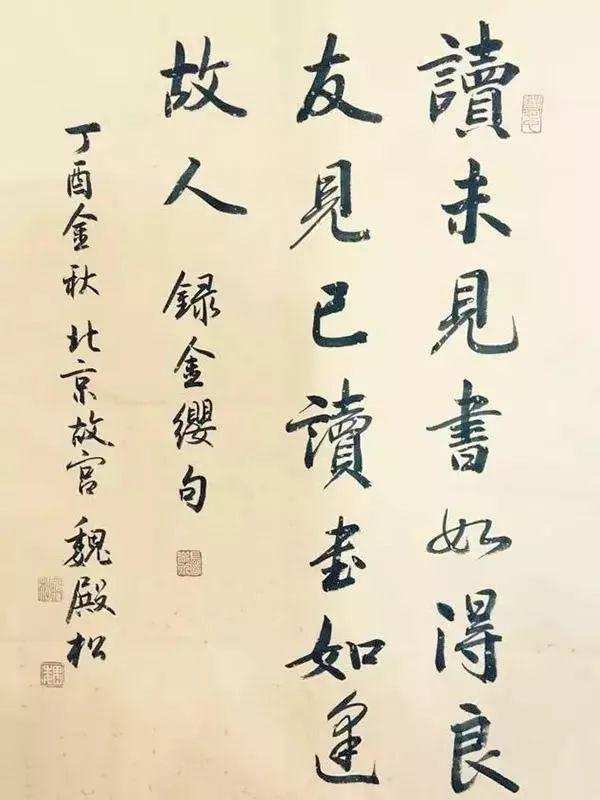 讀未見書如得良
友見已讀書如逢
故人 録金纓句
丁酉金秋 北京故宮 魏殿松